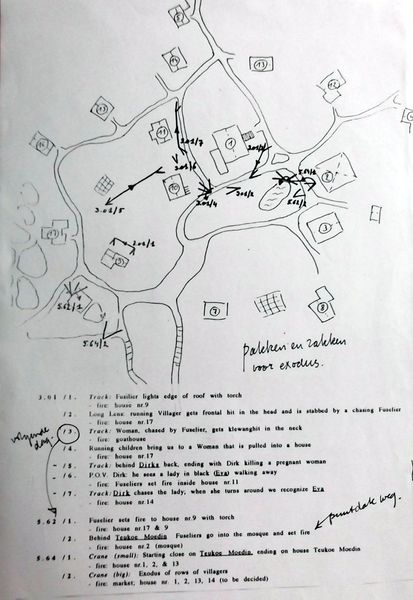 15
13
12
14
11
1
201/7
10
3.01/5
201/4
5.62/2
3
17
9
5.62/1
5.64/2
7
8
pakken en zakken
voor exodus.
3.01 /1. Track: Fusilier lights edge of roof with torch
- fire: house nr.9
/2. Long Lens: running Villager gets frontal hit in the head and is stabbed by a chasing Fuselier
- fire: house nr.17
volgende
dag.
/3. Track: Woman, chased by Fuselier, gets klewanghit in the neck
- fire: goathouse
/4. Running children bring us to a Woman that is pulled into a house
- fire: house nr.17
/5. Track: behind Dirks back, ending with Dirk killing a pregnant woman
/6. P.O.V. Dirk: he sees a lady in black (Eva) walking away
- fire: Fuseliers set fire inside house nr.11
/7. Track: Dirk chases the lady; when she turns around we recognize Eva
- fire: house nr.14
puntdak weg.
5.62 /1. Fuselier sets fire to house nr.9 with torch
- fire: house nr.17 & 9
/2. Behind Teukoe Moedin Fuseliers go into the mosque and set fire
- fire: house nr.2 (mosque)
5.64 /1. Crane (small): Starting close on Teukoe Moedin, ending on house Teukoe Moedin
- fire: house nr.1, 2, & 13
/2. Crane (big): Exodus of rows of villagers
- fire: market; house nr. 1, 2, 13, 14 (to be decided)